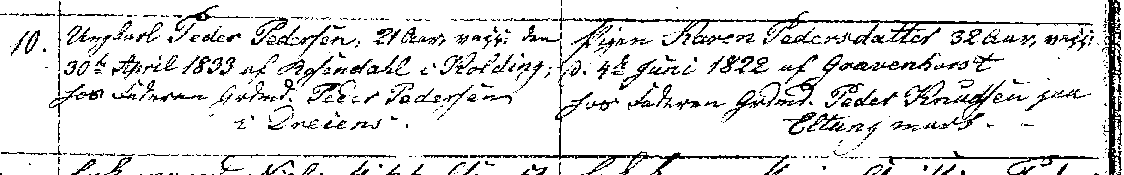 10. Ungkarl Peder Pedersen, 21 Aar, vacc: den
30te April 1833 af Rosendahl i Kolding,
hos Faderen Grdmd. Peder Pedersen
i Dreiens.
Pigen Karen Pedersdatter 32 Aar, vacc:
d. 4de Juni 1822 af Gravenhorst
hos Faderen Grdmd. Peder Knudsen paa
Eltang mark.